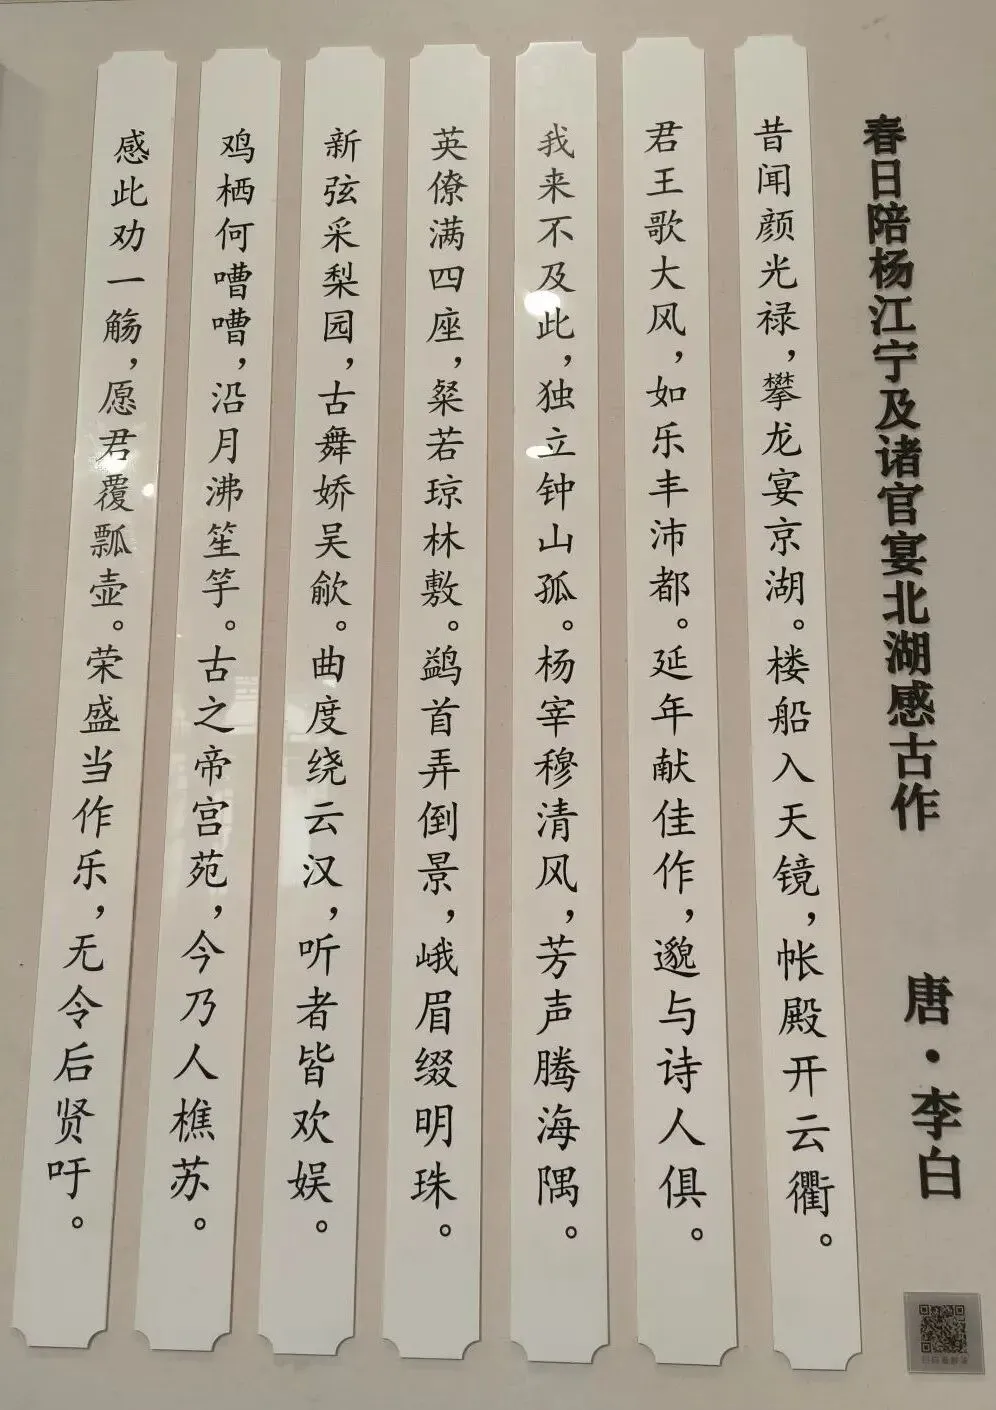 春日陪杨江宁及诸官宴北湖感古作
唐·李白
昔闻颜光禄，攀龙宴京湖。楼船入天镜，帐殿开云衢。
君王歌大风，如乐丰沛都。延年献佳作，邈与诗人俱。
我来不及此，独立钟山孤。杨宰穆清风，芳声腾海隅。
英僚满四座，粲若琼林敷。鹢首弄倒景，峨眉缀明珠。
新弦采梨园，古舞娇吴歈。曲度绕云汉，听者皆欢娱。
鸡栖何嘈嘈，沿月沸笙竽。古之帝宫苑，今乃人樵苏。
感此劝一觞，愿君覆瓢壶。荣盛当作乐，无令后贤吁。